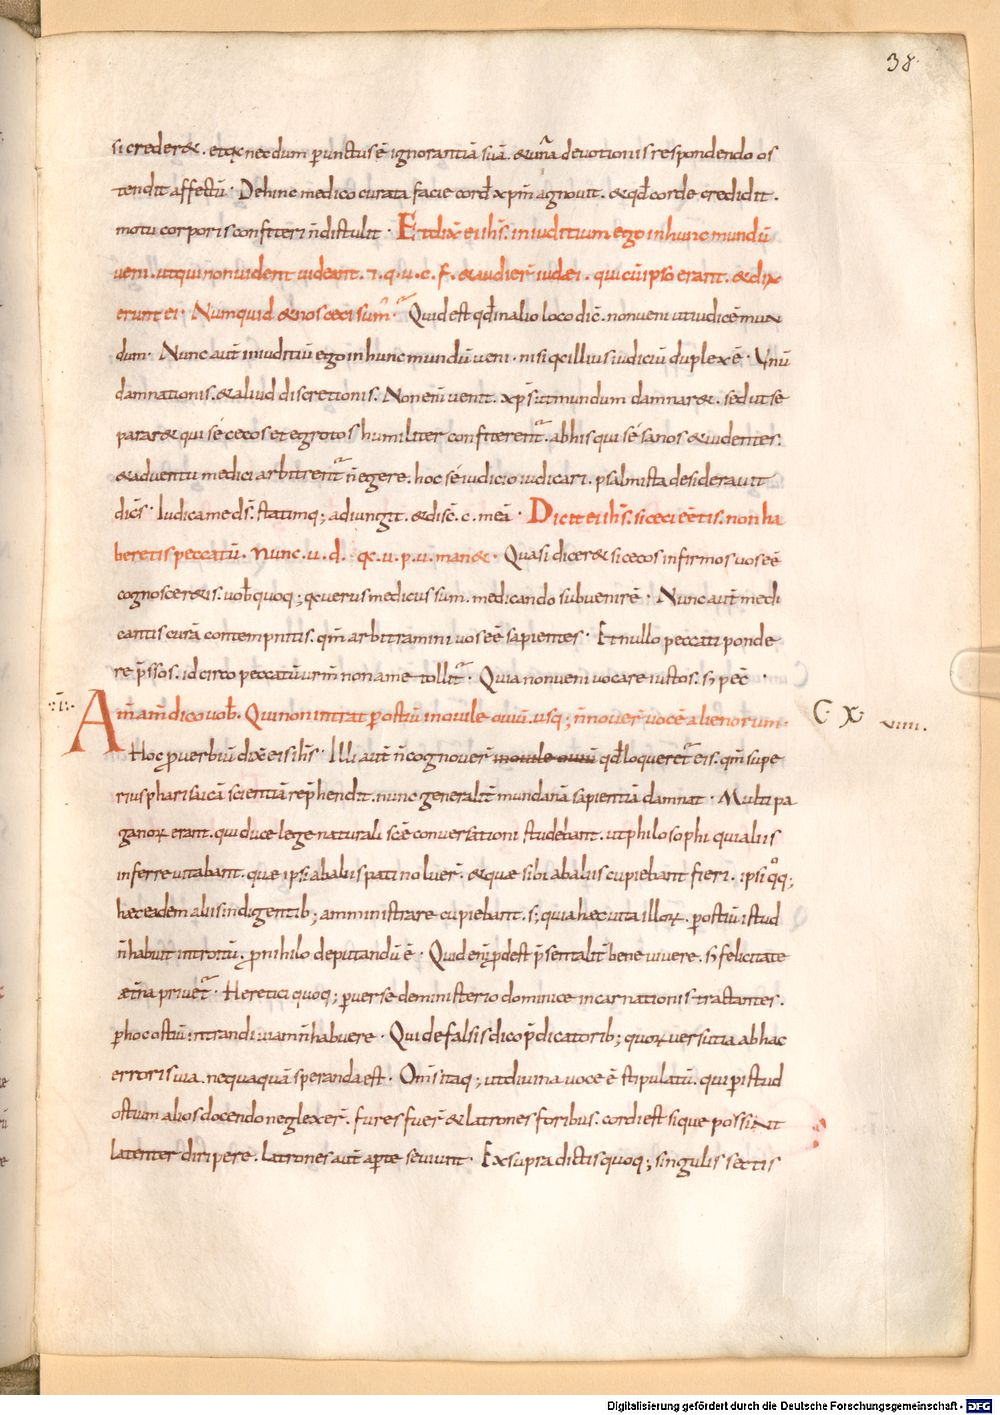 38
si crederet. et qꝫ necdum ꝑunctus ē ignorantiā suā. & un̄a devotionis respondendo os
tendit affectū. Dehinc medico curata facie cord̄ xp̄m agnovit. & qđ corde credidit.
motu corporis confiteri n̄ distulit. Et dix̄ ei ih̄s. in iuditium ego in hunc mundū
veni. ut qui non vident videant. ⁊. q. u. c. f. & audier̄ iudæi. qui cū ipso erant. & dix
erunt ei. Numquid & nos ceci sum᾽. Quid est qđ in alio loco dic̄. non veni ut iudicē mun
dum. Nunc aut̄ in iuditiū ego in hunc mundū veni. nisi qꝫ illius iudiciū duplex ē. Unū
damnationis. & aliud discretionis. Non enī venit. xp̄s. ut mundum damnaret. sed ut se
pararet qui sé cecos et egrotos humiliter confiterent᷑. ab his qui sé sanos & videntes.
& adventu medici arbitrent᷑ n̄ egere. hoc sé iudicio iudicari. psalmista desideravit
dic̄s. Iudica me d̄s. statimq; adiungit. & disc̄. c. meā. Dicit ei ih̄s. si ceci eētis. non ha
beretis peccatū. Nunc. u. d. qꝫ. u. p. u. manet. Quasi diceret si cecos infirmos vos eē
cognosceretis. vob̄ quoq; qꝫ verus medicus sum. medicando subvenirē. Nunc aut̄ medi
cantis curā contempnitis. qm̄ arbitramini vos eē sapientes. Et nullo peccati ponde
re p̄ssos. id circo peccatū urm̄ non a me tollit᷑. Quia non veni vocare iustos. sꝫ pec̄.
·:ī:· Am̄ am̄ dico vob̄. Qui non intrat ꝑ ostiū in ovile oviū. usq; n̄ nover̄ vocē alienorum. C X viiii.
Hoc ꝓverbiū dix̄ eis ih̄s. Illi aut̄ n̄ cognover̄ in ovile oviū qđ loqueret᷑ eis. qm̄ supe
rius pharisaicā scientiā rep̄hendit. nunc generalit̄ mundanā sapientiā damnat. Multi pa
ganoꝝ erant. qui duce lege naturali scē conversationi studebant. ut philosophi qui aliis
inferre vitabant. quæ ipsi ab aliis pati noluer̄. & quæ sibi ab aliis cupiebant fieri. ipsi qͦq;
hæc eadem aliis indigentib; amministrare cupiebant. sꝫ quia hæc vita illoꝝ. ꝑ ostiū istud
n̄ habuit introitū. ꝓ nihilo deputandū ē. Quid enī ꝓdest p̄sentalit̄ bene vivere. sꝫ felicitate
æt̄na privet᷑. Heretici quoq; ꝑverse de ministerio dominice incarnationis tractantes.
ꝑ hoc ostiū intrandi viam n̄ habuere. Qui de falsis dico p̄dicatorib; quoꝝ versutia ab hac
erroris via. nequaquā speranda est. Om̄s itaq; ut divina voce ē stipulatū. qui ꝑ istud
ostium alios docendo neglexer̄. fures fuer̄ & latrones foribus. cordi est sique possint
latenter diripere. latrones aut̄ aꝑte seviunt. Ex supradictis quoq; singulis sectis
Digitalisierung gefördert durch die Deutsche Forschungsgemeinschaft - DFG